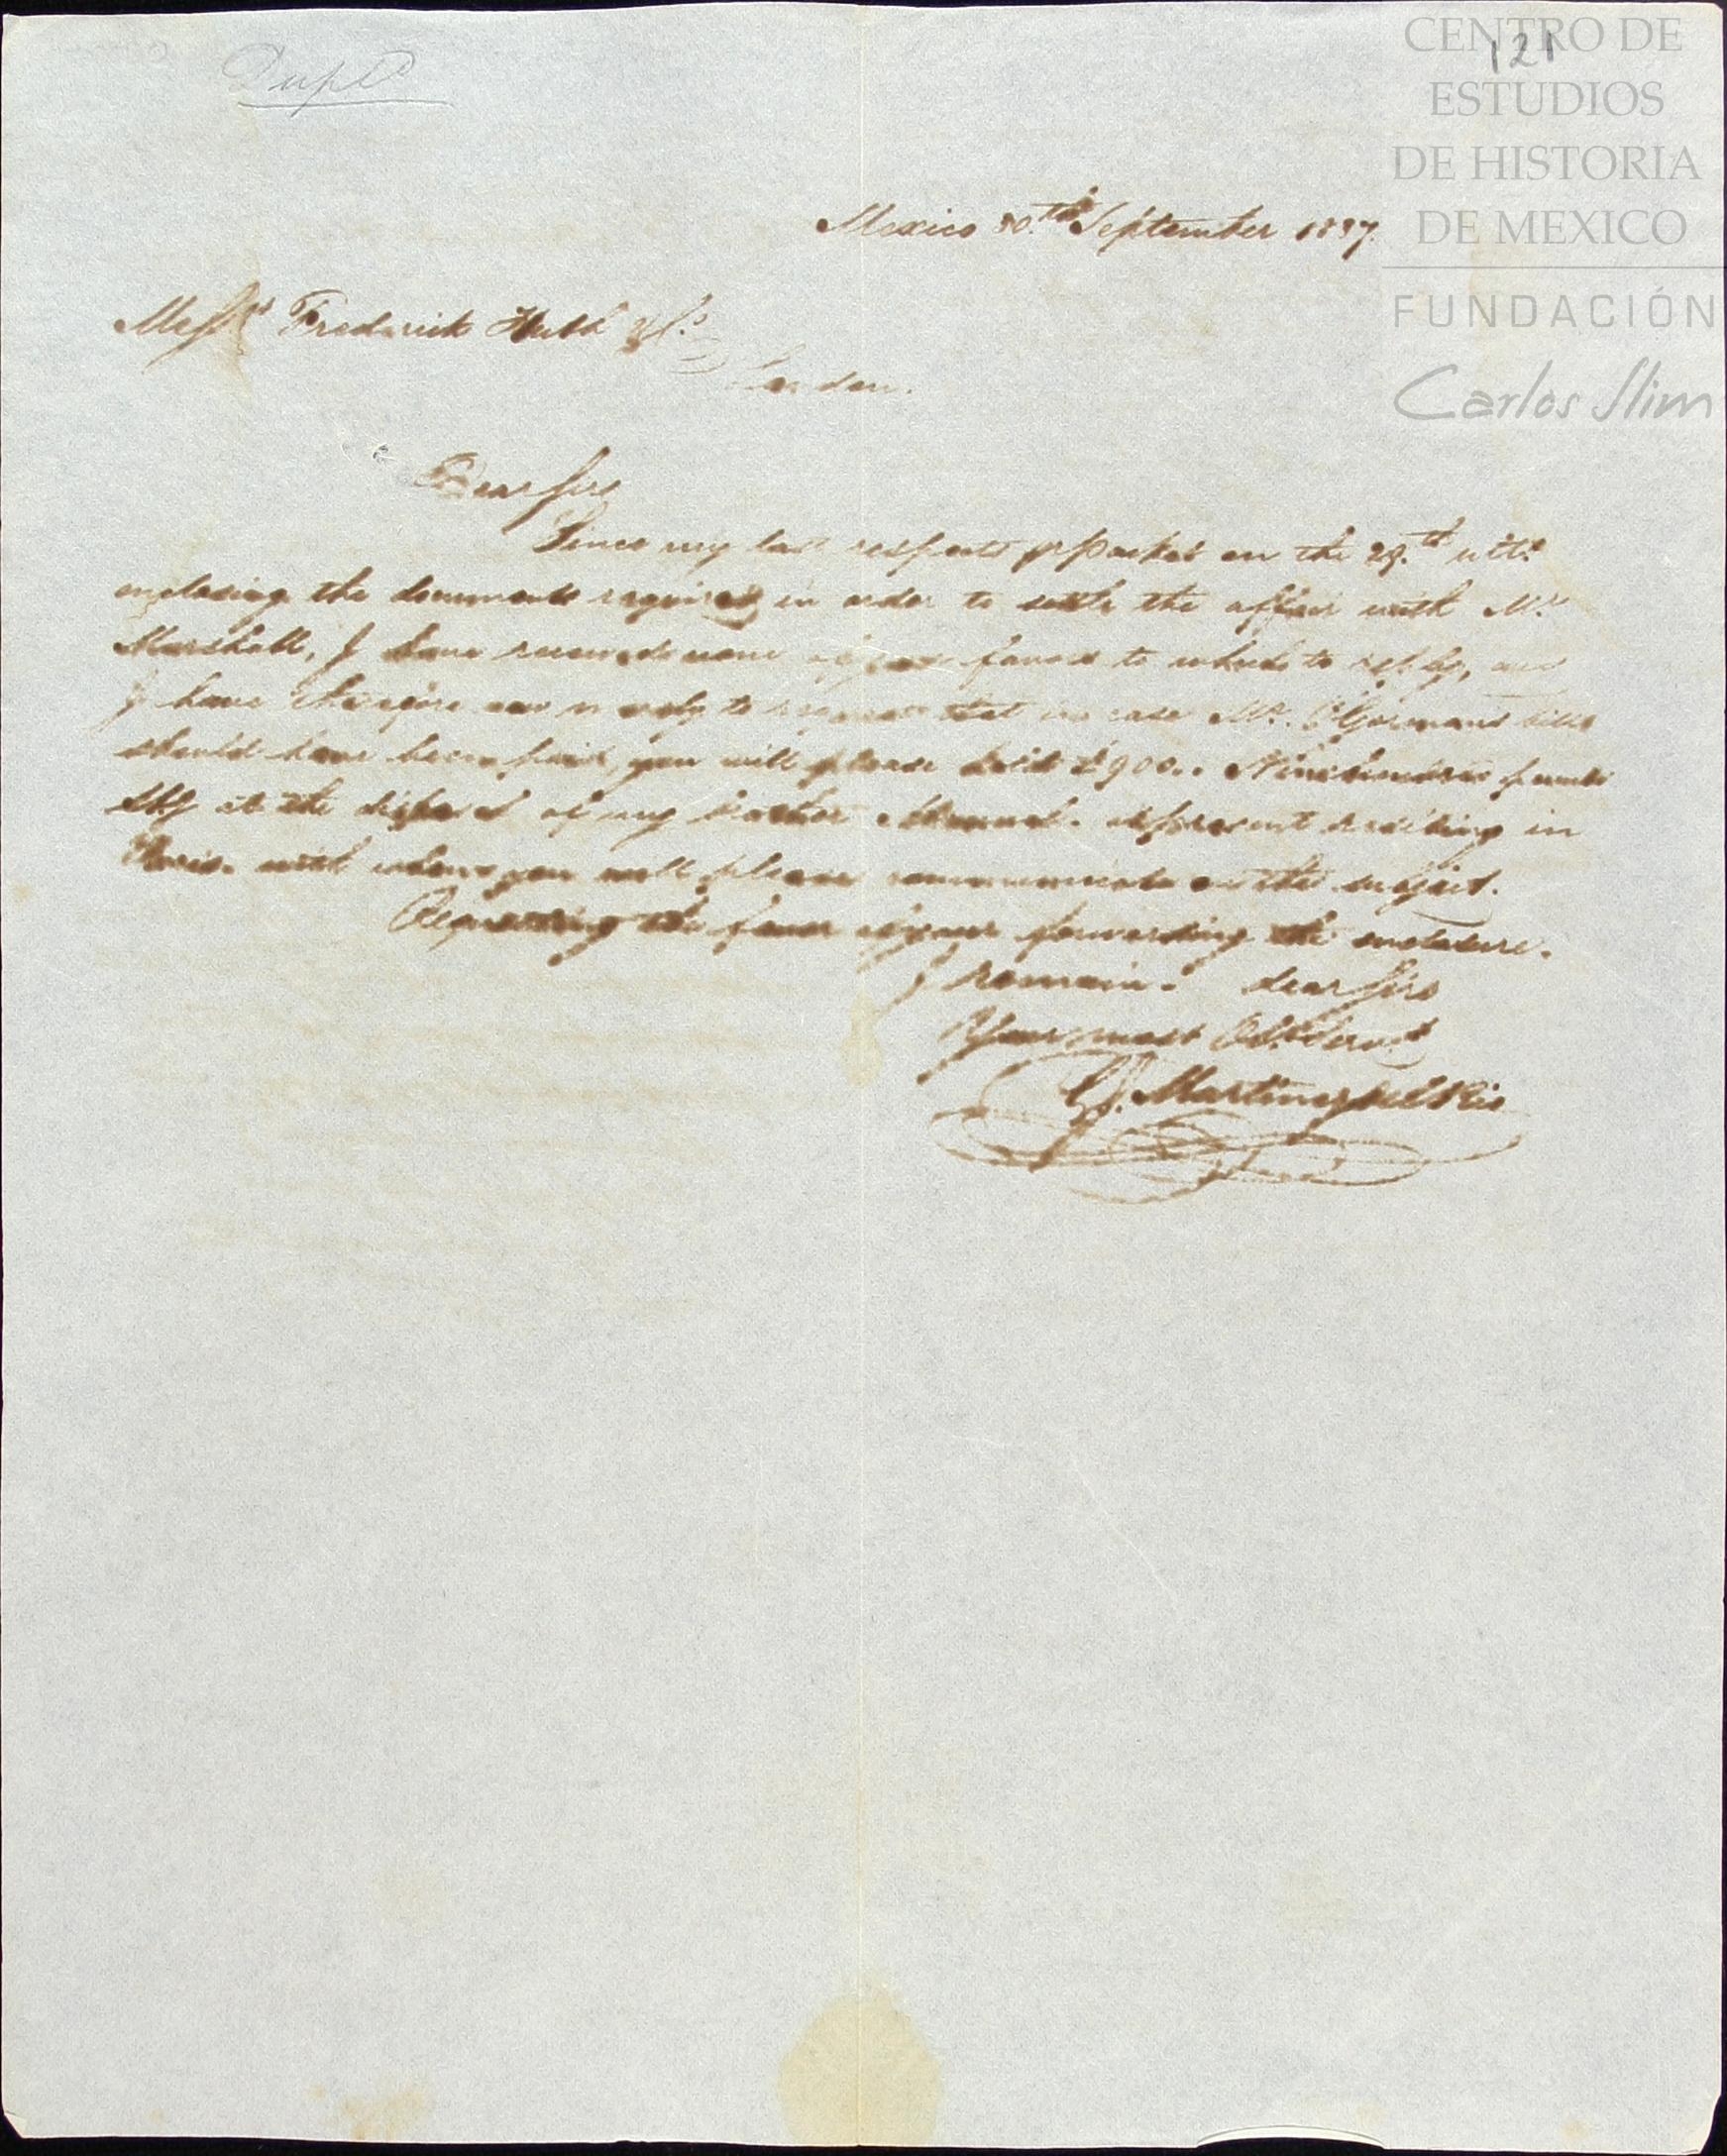 Dupl
121
CENTRO DE
ESTUDIOS
DE HISTORIA
DE MEXICO
FUNDACIÓN
Carlos Slim
Mexico 30th September 1837.
Messrs Frederick Huth & Co
London.
Dear Sirs
Since my last respects pr Packet on the 29th ulto
enclosing the documents required in order to settle the affair with Mr
Marshall, I have received none of your favors to which to reply, and
I have therefore now only to request that in case Mr. O'Gormans bills
should have been paid, you will please hold £900.. Nine hundred pounds
Stg at the disposal of my brother Manuel. at present residing in
Paris. with whom you will please communicate on the subject.
Requesting the favor of your forwarding the enclosure.
I remain. dear Sirs
Your most Obt Servt
G. Martinez del Rio